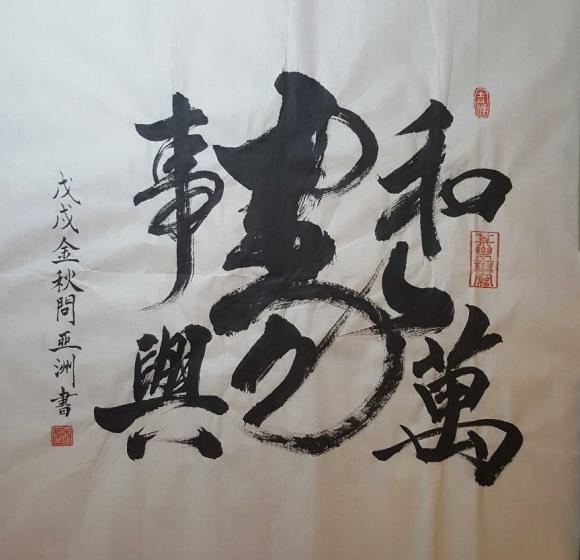 和萬
事興
戊戌金秋問亞洲書